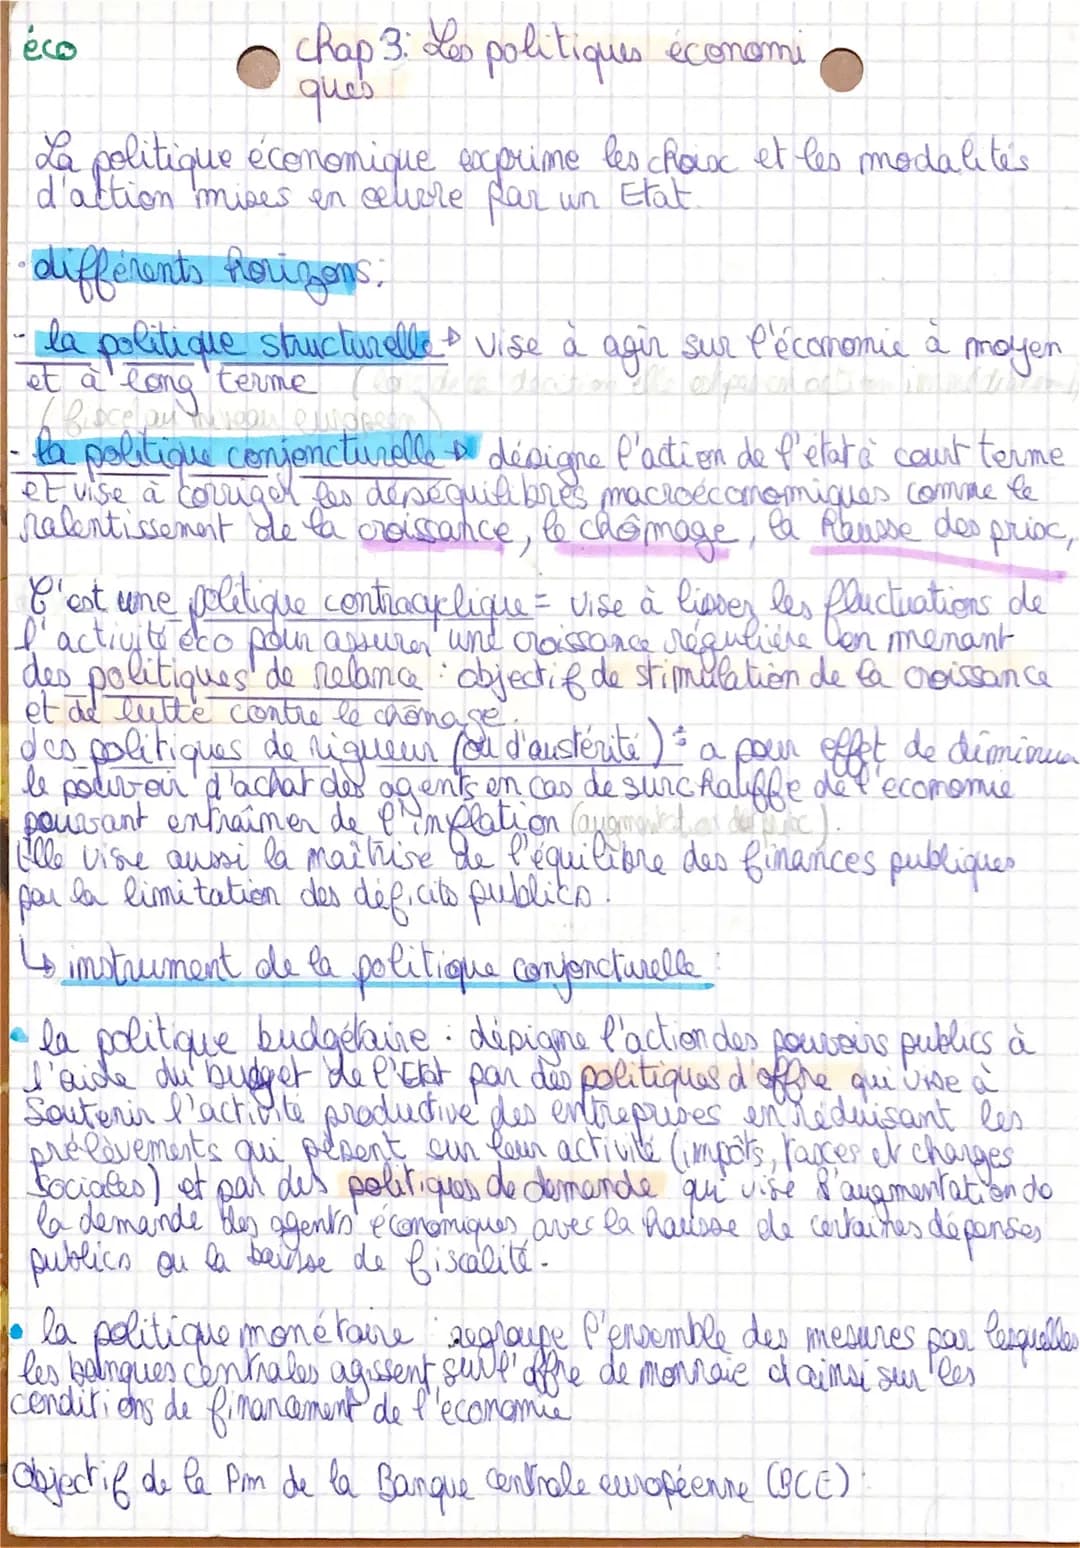 éco
chap 3: Les politiques économi
ques
La politique économique exprime les choix et les modalités
d'action mises en œuvre par un Etat.
· différents horizons:
- la politique structurelle → vise à agir sur l'économie à moyen
et à long terme
(fixé au niveau européen)
- la politique conjoncturelle → désigne l'action de l'état à court terme
et vise à corriger les déséquilibres macroéconomiques comme le
ralentissement de la croissance, le chômage, la hausse des prix,
C'est une politique contracyclique = vise à lisser les fluctuations de
l'activité éco pour assurer une croissance régulière en menant
des politiques de relance : objectif de stimulation de la croissance
et de lutte contre le chômage.
des politiques de rigueur (ou d'austérité) : a pour effet de diminuer
le pouvoir d'achat des agents en cas de surchauffe de l'économie
pouvant entraîner de l'inflation (augmentation des prix).
Elle vise aussi la maîtrise de l'équilibre des finances publiques
par la limitation des déficits publics.
↳ instrument de la politique conjoncturelle :
• la politique budgétaire : désigne l'action des pouvoirs publics à
l'aide du budget de l'Etat par des politiques d'offre qui vise à
soutenir l'activité productive des entreprises en réduisant les
prélèvements qui pèsent sur leur activité (impôts, taxes et charges
sociales) et par des politiques de demande qui vise l'augmentation de
la demande des agents économiques avec la hausse de certaines dépenses
publics ou la baisse de fiscalité.
• la politique monétaire : regroupe l'ensemble des mesures par lesquelles
les banques centrales agissent sur l'offre de monnaie et ainsi sur les
conditions de financement de l'économie
Objectif de la Pm de la Banque centrale européenne (BCE) :